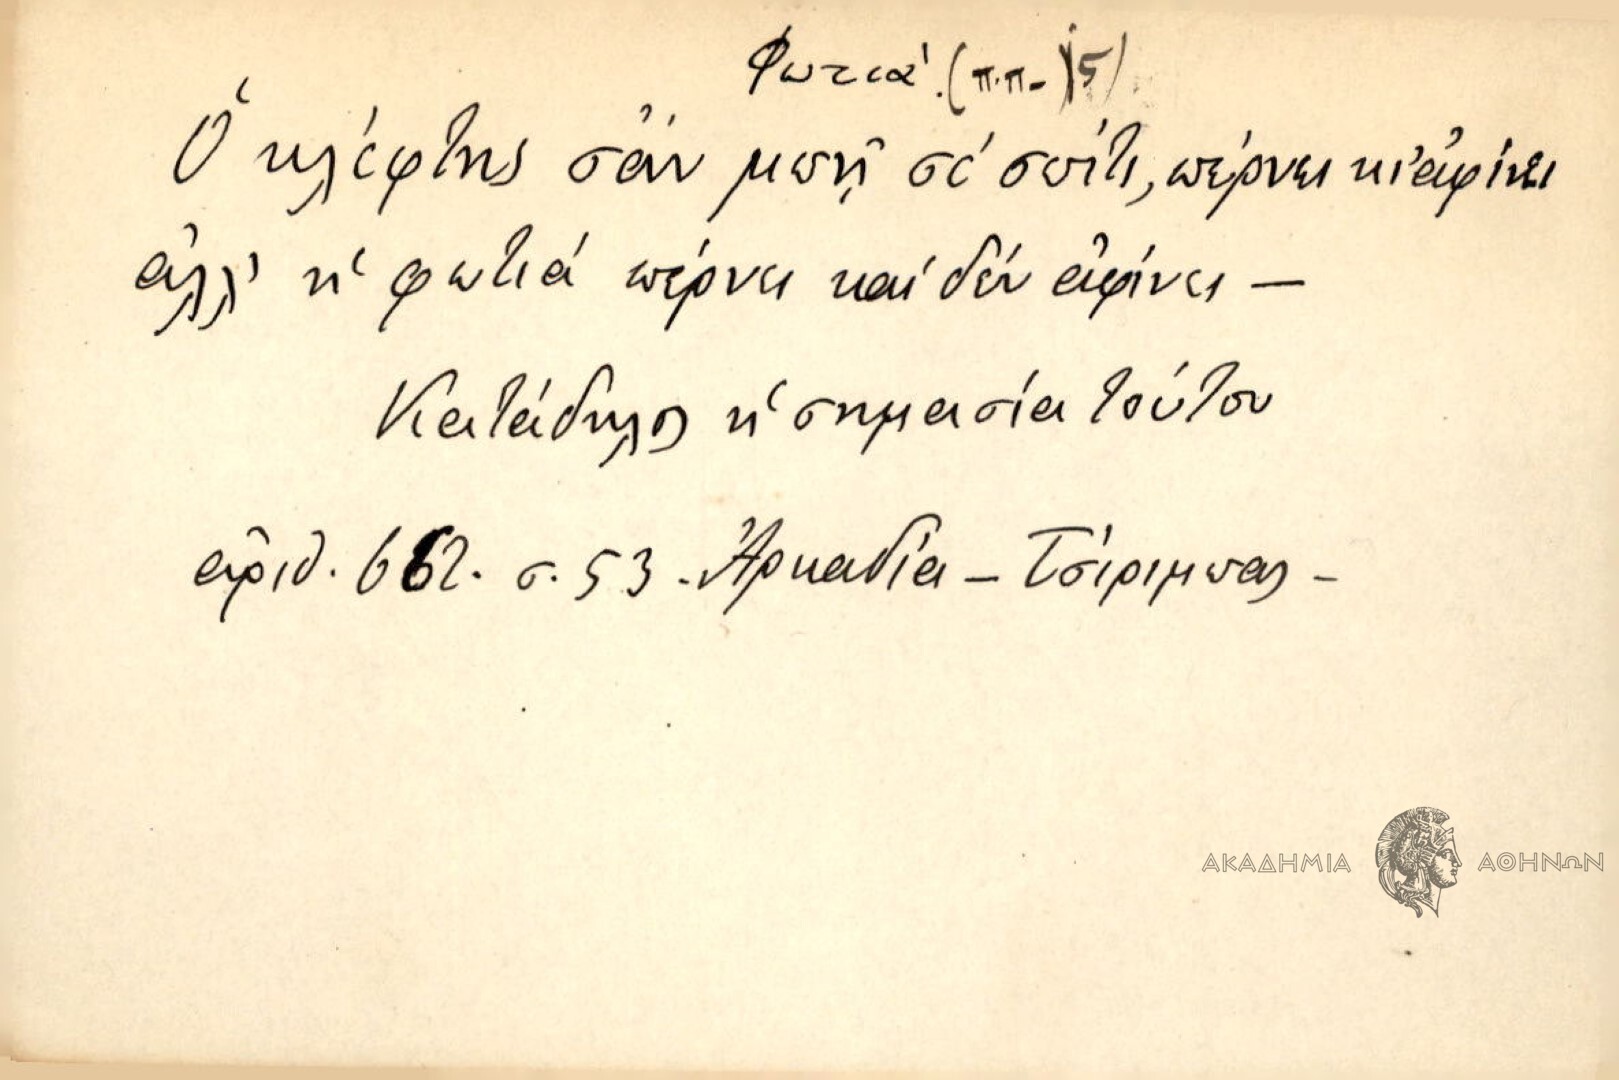 Φωτιά. (π.π.) 5)
Ὁ κλέφτης σἄν μπῇ σέ σπίτι, πέρνει κι' ἀφίνει
ἀλλ' ἡ φωτιά πέρνει καί δέν ἀφίνει –
Κατάδηλος ἡ σημασία τούτου
ἀριθ. 662. σ. 53. Ἀρκαδία – Τσίριμπας –
ΑΚΑΔΗΜΙΑ ΑΘΗΝΩΝ